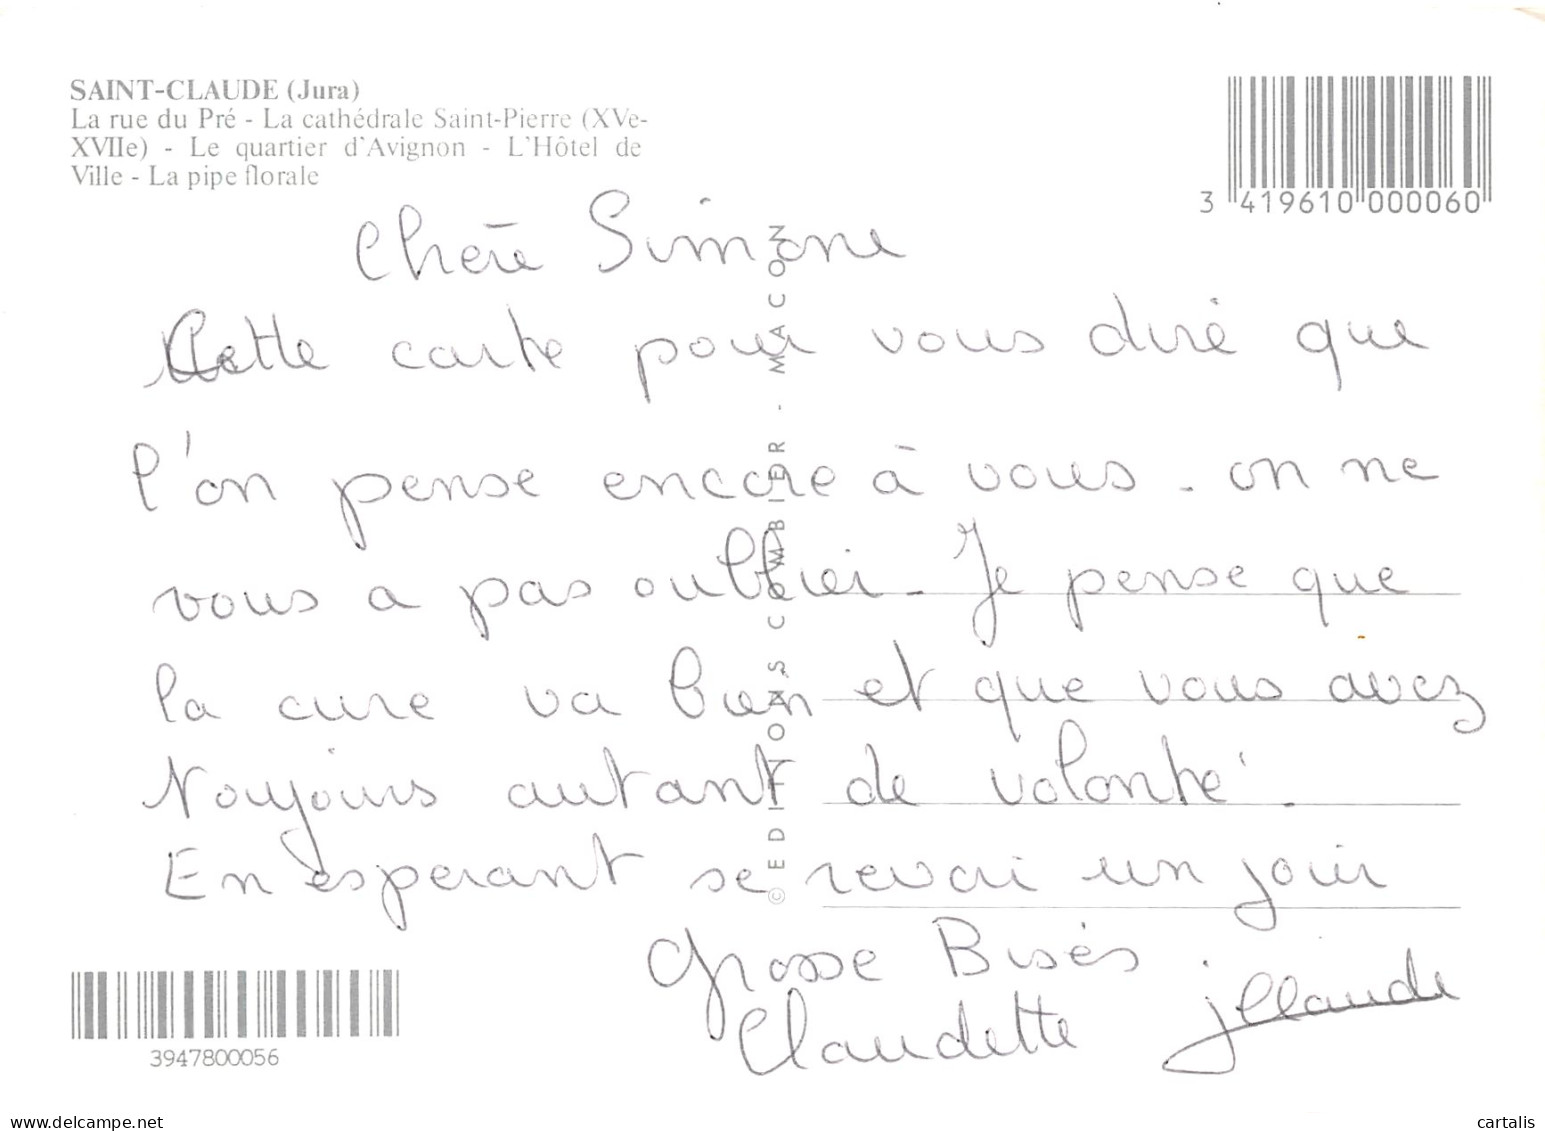 SAINT-CLAUDE (Jura)
La rue du Pré - La cathédrale Saint-Pierre (XVe-
XVIIe) - Le quartier d'Avignon - L'Hôtel de
Ville - La pipe florale
3 419610 000060
Chère Simone
Cette carte pour vous dire que
l'on pense encore à vous. on ne
vous a pas oublier. Je pense que
la cure va bien et que vous avez
Toujours autant de volonté.
En esperant se revoir un jour
Grosse Bises
Claudette jClaude
© EDITIONS COMBIER - MACON
3947800056
delcampe.net
cartalis